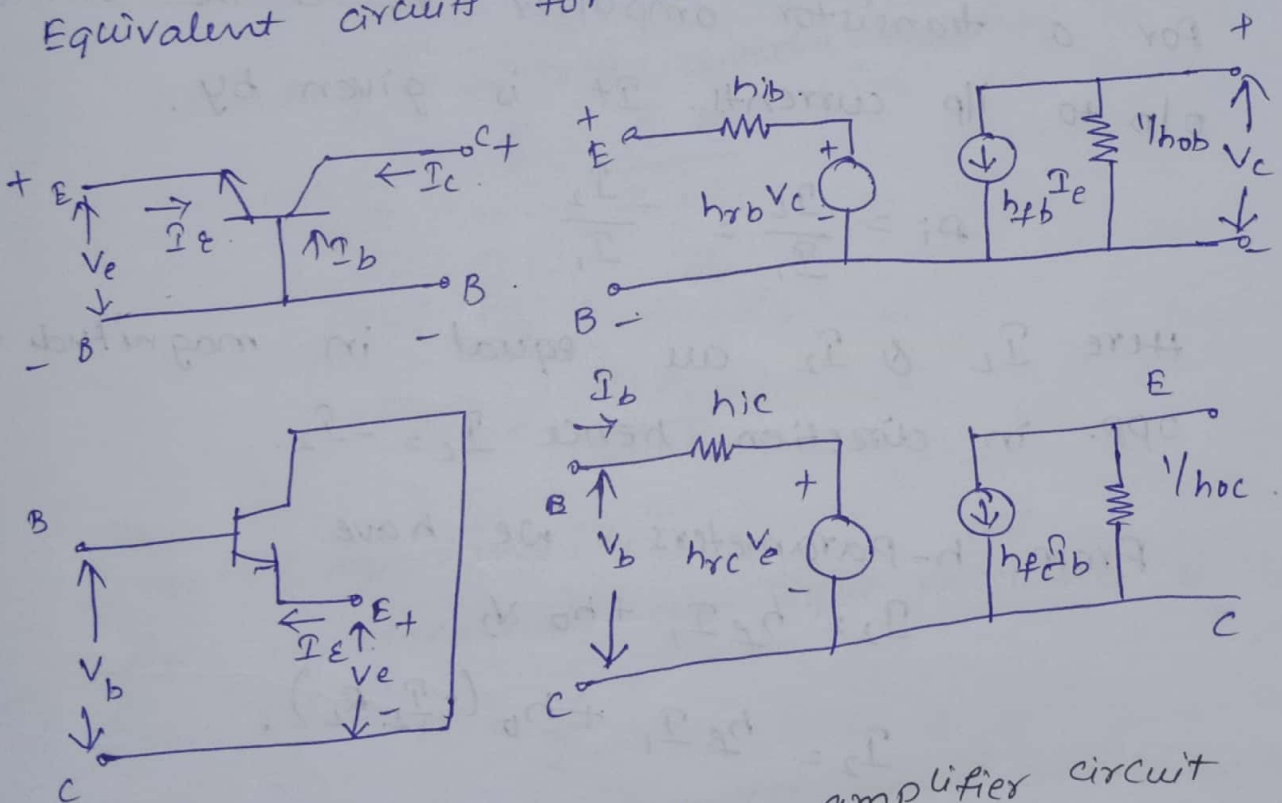 Equivalent circuits for
+ E Ie C + ← Ic
Ve ↑ Ib
B - B -
+ E hib + hrb Vc - hfb Ie 1/hob + Vc -
B -
B Vb C
← IE E + Ve -
Ib → hic
B Vb + hrc Ve - hfc Ib 1/hoc E
C C
amplifier circuit